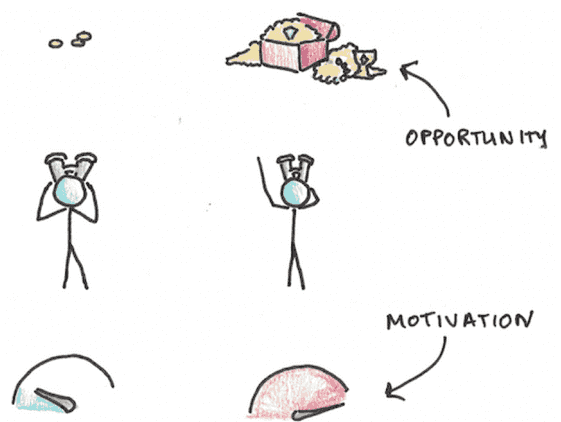 OPPORTUNITY
MOTIVATION